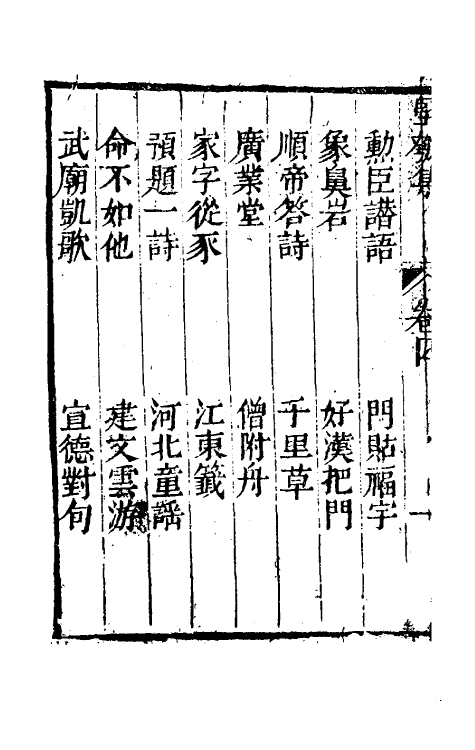 勳臣譛語　門貼福字
象鼻岩　好漢把門
順帝答詩　千里草
廣業堂　僧附舟
家字從豕　江東籤
預題一詩　河北童謡
命不如他　建文雲游
武廟凱歌　宣德對句
卷四
一